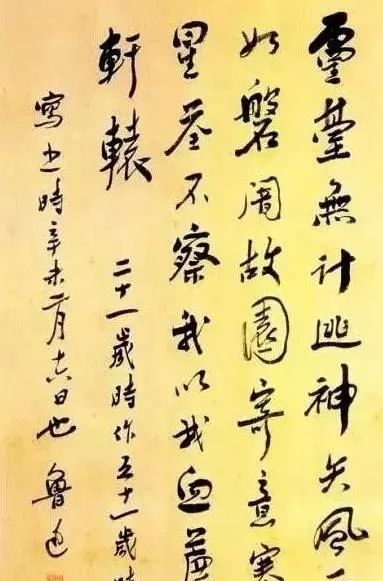 靈臺無計逃神矢風
如磐闇故園寄意寒
星荃不察我以我血薦
軒轅
二十一歲時作五十一歲時
寫之時辛未二月十六日也 魯迅